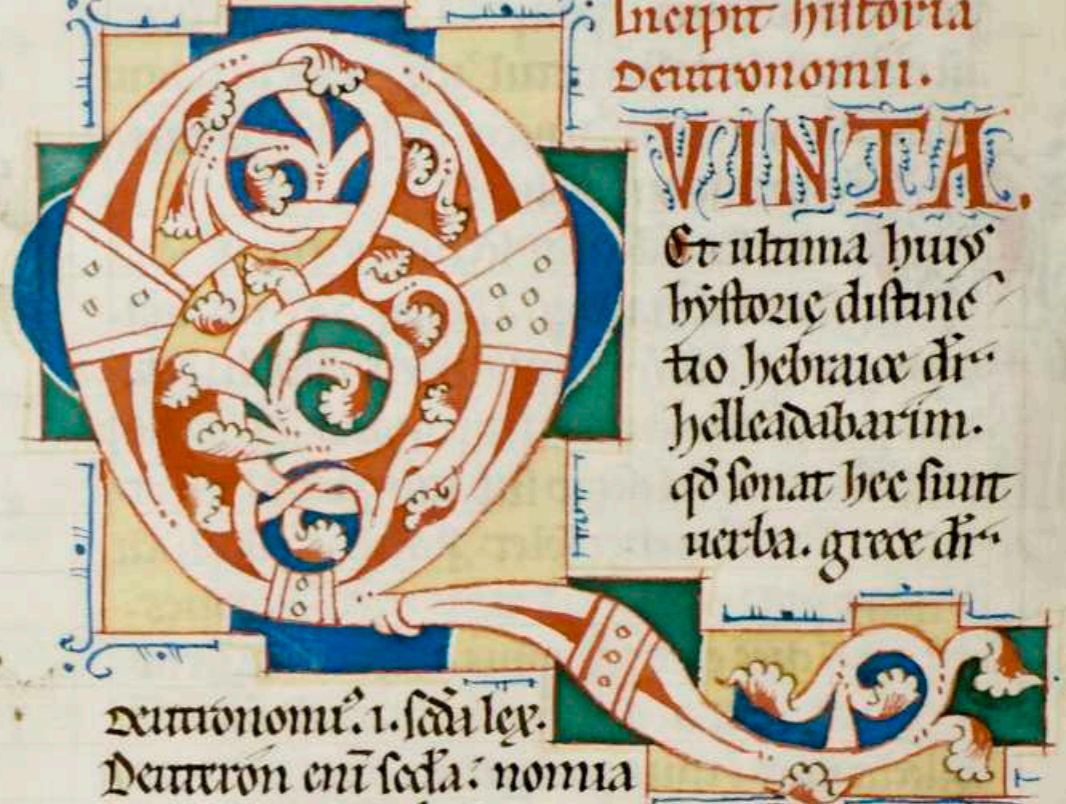 Incipit historia
Deutronomii.
QVINTA.
Et ultima huiꝰ
hẏstorię distinc
tio hebraice dr̄
helleadabarim.
qď sonat hec sunt
uerba. grece dr̄
deutronomiū. i. scďa lex.
Deuteron eni̅ scďa: nomia